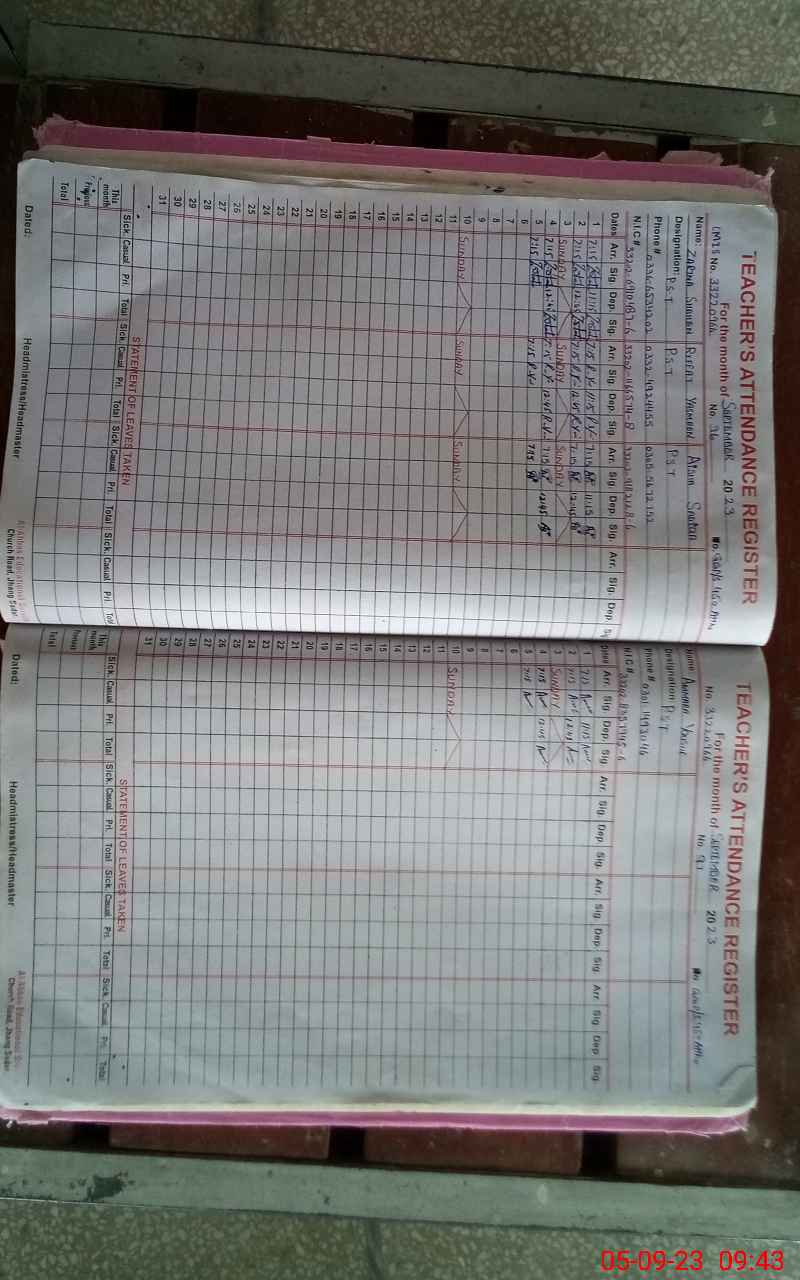 TEACHER'S ATTENDANCE REGISTER
For the month of SEPTEMBER 2023
EMIS No. 33220966 No. 96
Name: ZARINA SHAHEEN RIFFAT YASMEEN
Designation: P.S.T P.S.T P.S.T
Phone# 0336-6534202 0332-4924455 0305-5672152
N.I.C#
Dates Arr. Sig. Dep. Sig. Arr. Sig. Dep. Sig. Arr. Sig. Dep. Sig. Arr. Sig. Dep.
1 7:15 11:15 7:15 R.Y 11:15 R.Y 7:15 11:15
2 7:15 12:45 7:15 R.Y 12:45 R.Y 7:15 12:45
3 SUNDAY SUNDAY SUNDAY
4 7:15 12:45 7:15 R.Y 12:45 R.Y 7:15 12:45
5 7:15 7:15 R.Y 7:15
6
7
8
9
10 SUNDAY SUNDAY SUNDAY
11
12
13
14
15
16
17
18
19
20
21
22
23
24
25
26
27
28
29
30
31
STATEMENT OF LEAVES TAKEN
Sick. Casual Pri. Total Sick. Casual Pri. Total Sick. Casual Pri. Total Sick. Casual Pri.
This month
Total
Dated: Headmistress/Headmaster
Al Abbas Educational
Church Road, Jhang Sadar
TEACHER'S ATTENDANCE REGISTER
For the month of SEPTEMBER 2023
No. 33220966 No. 97
Name:
Designation: P.S.T
Phone# 0301-1493046
N.I.C#
Dates Arr. Sig. Dep. Sig. Arr. Sig. Dep. Sig. Arr. Sig. Dep. Sig. Arr. Sig. Dep. Sig.
1 7:15 11:15
2 7:15 12:45
3 SUNDAY
4 7:15 12:45
5 7:15
6
7
8
9
10 SUNDAY
11
12
13
14
15
16
17
18
19
20
21
22
23
24
25
26
27
28
29
30
31
STATEMENT OF LEAVES TAKEN
Sick. Casual Pri. Total Sick. Casual Pri. Total Sick. Casual Pri. Total Sick. Casual Pri. Total
This month
Previous
Total
Dated: Headmistress/Headmaster
Al Abbas Educational
Church Road, Jhang Sadar
05-09-23 09:43